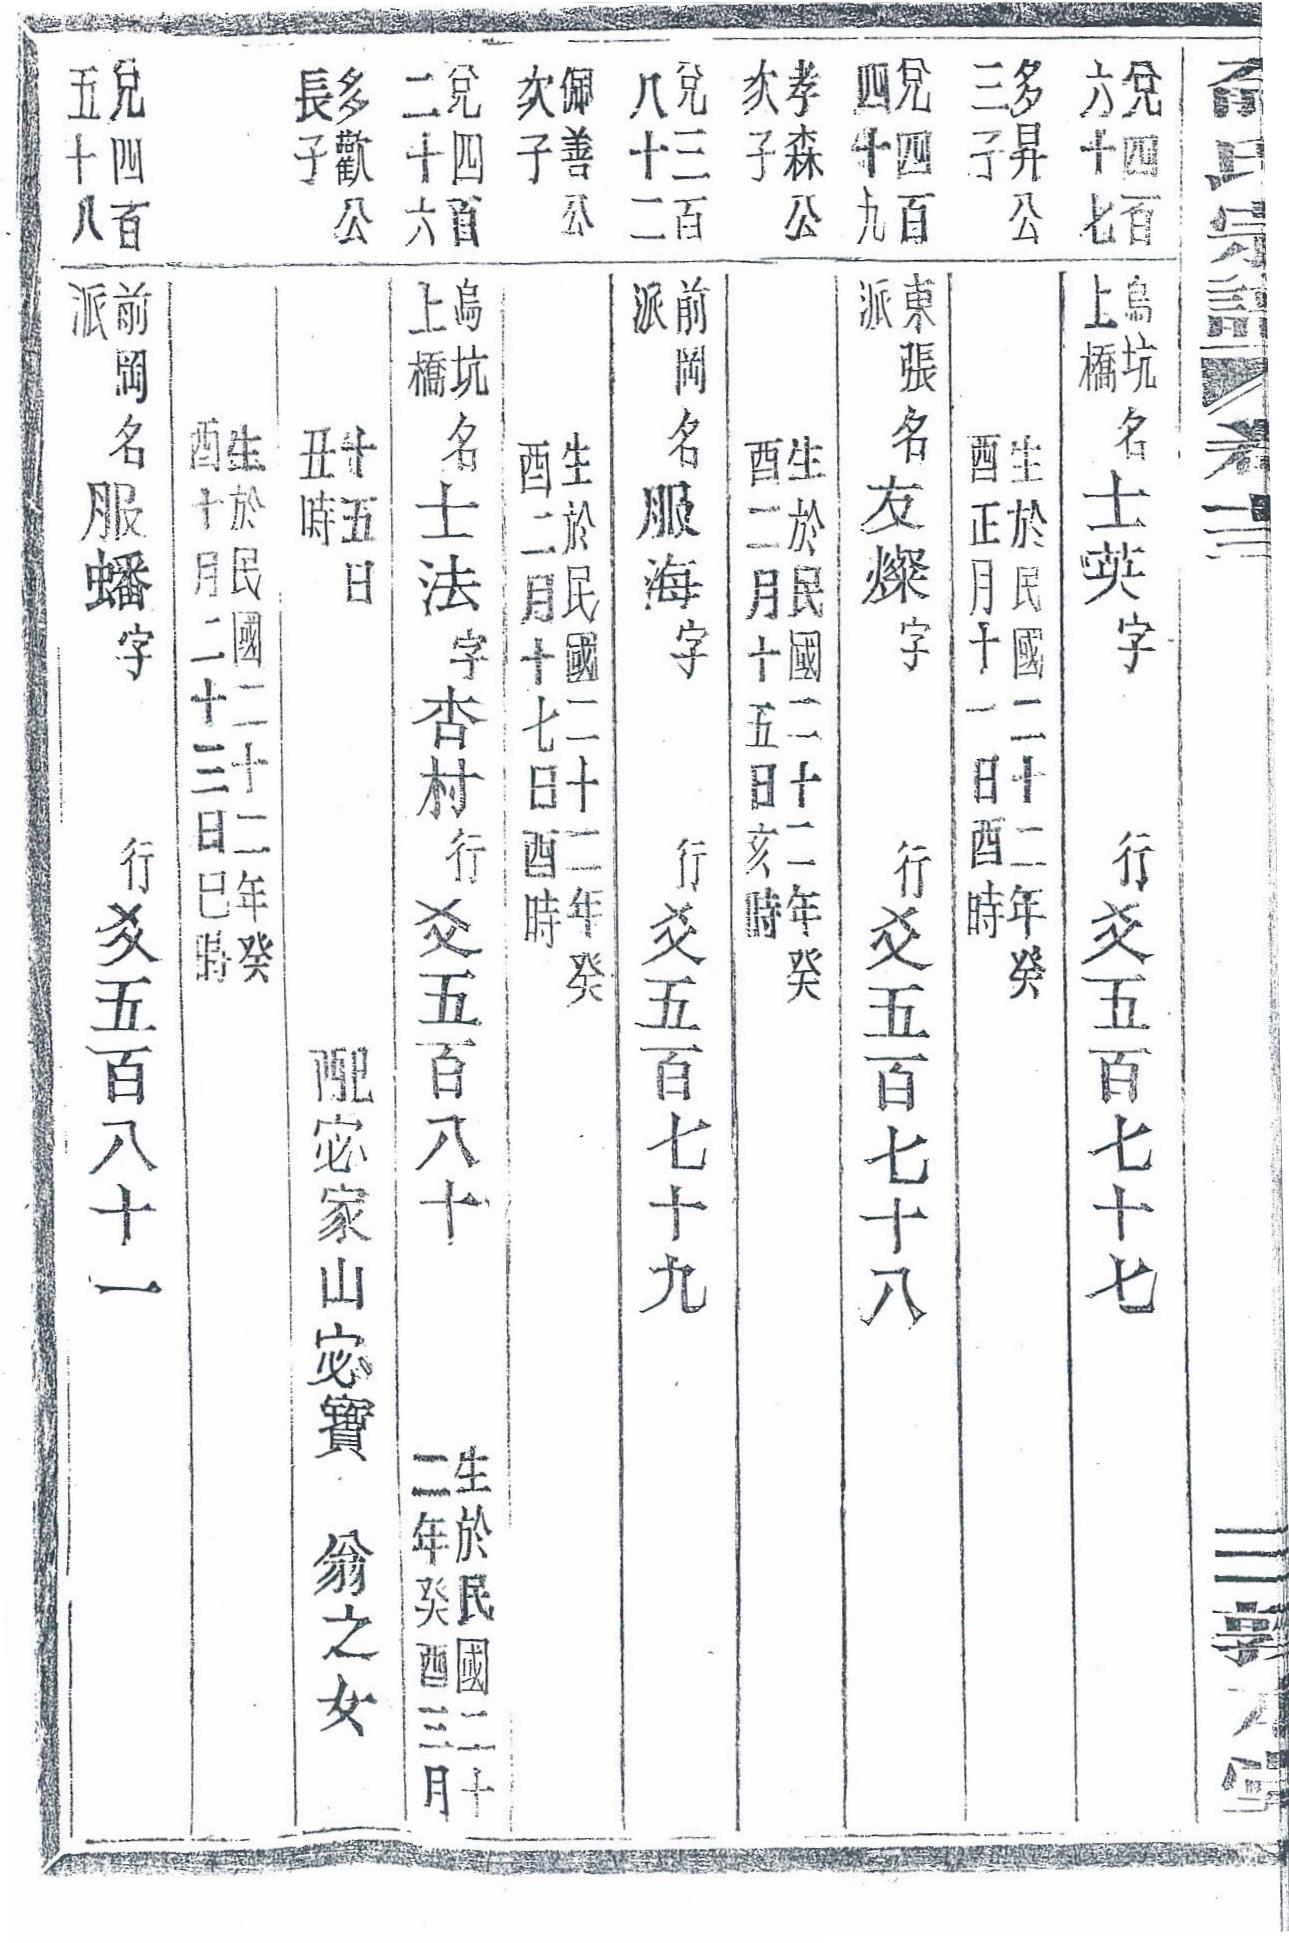 氏宗譜 卷十二
三
兌四百
六十七
烏坑
上橋
名士英字
行爻五百七十七
多昇公
三子
生於民國二十二年癸
酉正月十一日酉時
兌四百
四十九
東張
派
名友燦字
行爻五百七十八
孝森公
次子
生於民國二十二年癸
酉二月十五日亥時
兌三百
八十二
前岡
派
名服海字
行爻五百七十九
佩善公
次子
生於民國二十二年癸
酉二月十七日酉時
兌四百
二十六
烏坑
上橋
名士法字杏村行爻五百八十
生於民國二十
二年癸酉三月
多歡公
長子
十五日
丑時
配宓家山宓寶 翁之女
生於民國二十二年癸
酉十月二十三日巳時
兌四百
五十八
前岡
派
名服蟠字
行爻五百八十一